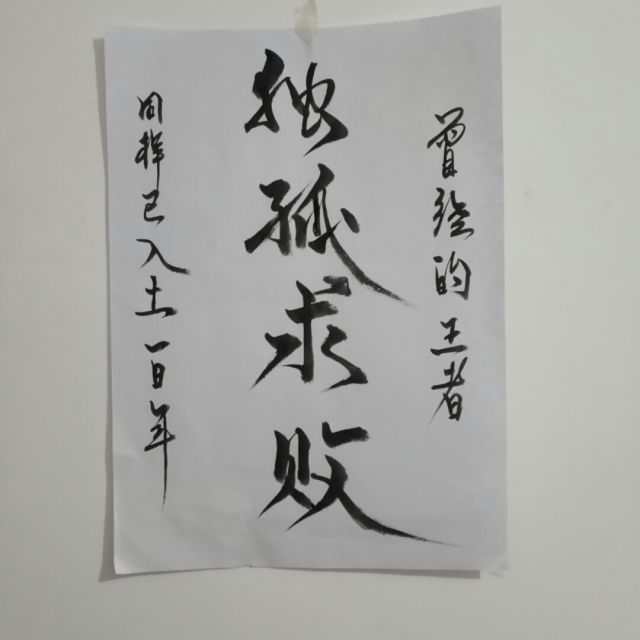 曾经的王者
独孤求败
同样已入土一百年